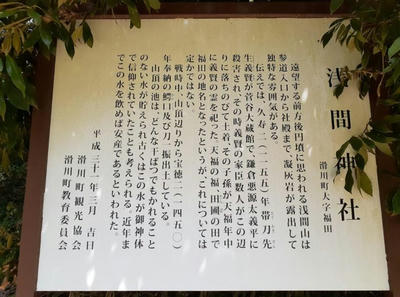 浅間神社
滑川町大字福田
遠望する前方後円墳に思われる浅間山は
参道入口から社殿まで、凝灰岩が露出して
独特な雰囲気がある。
伝えでは、久寿二（一一五五）年帯刀先
生義賢が菅谷大蔵館で、鎌倉悪源太義平に
殺害され、その時義賢の家臣数人がこの辺
りに落ちのびて土着、その子孫が天福年中
に義賢の霊を祀った。天福の福・田圃の田で
福田の地名となったというが、これについては
定かではない。
戦時中、山頂辺りから宝徳二（一四五〇）
年奉納の鰐口及び刀一振出土している。
山頂の池は、「どんな干ばつでもかれること
のない水が貯えられ古くはこの水が御神体
で信仰されていたことも考えられる。近年ま
でこの水を飲めば安産であるといわれた。
平成三十一年三月　吉日
滑川町観光協会
滑川町教育委員会